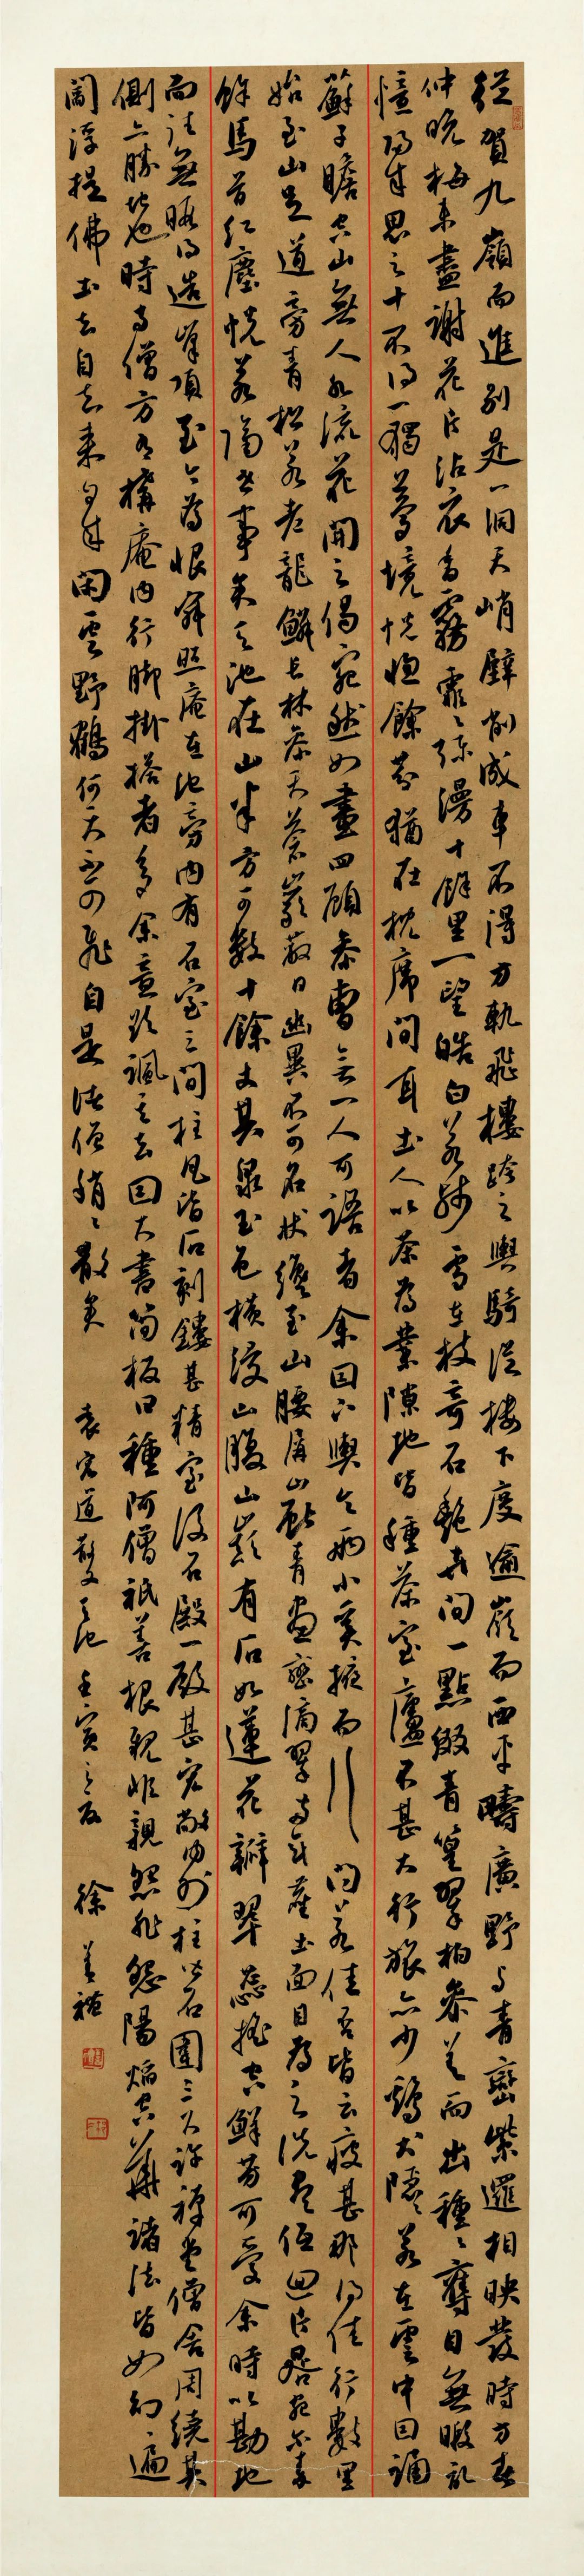 從賀九嶺而進別是一洞天峭壁削成車不得方軌飛樓跨之輿騎從樓下度逾嶺而西平疇廣野與青巒紫邏相映發時方春
仲晚梅未盡謝花片沾衣香霧霏霏彌漫十餘里一望皓白若殘雪在枝奇石艷卉間一點綴青篁翠柏參差而出種種奪目無暇記
憶歸來思之十不得一獨夢境恍惚餘芬猶在枕席間耳土人以茶為業隙地皆種茶室廬不甚大行旅亦少雞犬隱隱若在雲中因誦
蘇子瞻空山無人水流花開之偈宛然如畫四顧參曹無一人可語者余因下輿令兩小奚掖而行問若佳否皆云疲甚那得佳行數里
始至山足道旁青松若老龍鱗長林參天蒼巖蔽日幽異不可名狀纔至山腰屏山獻青畫巒滴翠兩年塵土面目為之洗盡低迴片晷宛爾秦
餘馬首紅塵恍若隔世事矣天池在山半方可數十餘丈其泉玉色橫浸山腹山巔有石如蓮花瓣翠蕊搖空鮮芳可愛余時以勘地
而往無暇得造峰頂至今為恨寂照庵在池旁內有石室三間柱瓦皆石刻鏤甚精室後石殿一殿甚宏敞內外柱皆石圍三尺許禪堂僧舍周繞其
側亦勝地也時有僧方為構庵內行腳掛搭者多余意欲諷之去因大書簡板曰種阿僧祇善根親非親怨非怨陽焰空華諸法皆如幻幻遍
閻浮提佛土去自去來自來閑雲野鶴何天不可飛自是諸僧稍稍散矣 袁宏道遊天池 壬寅之夏 徐善禮